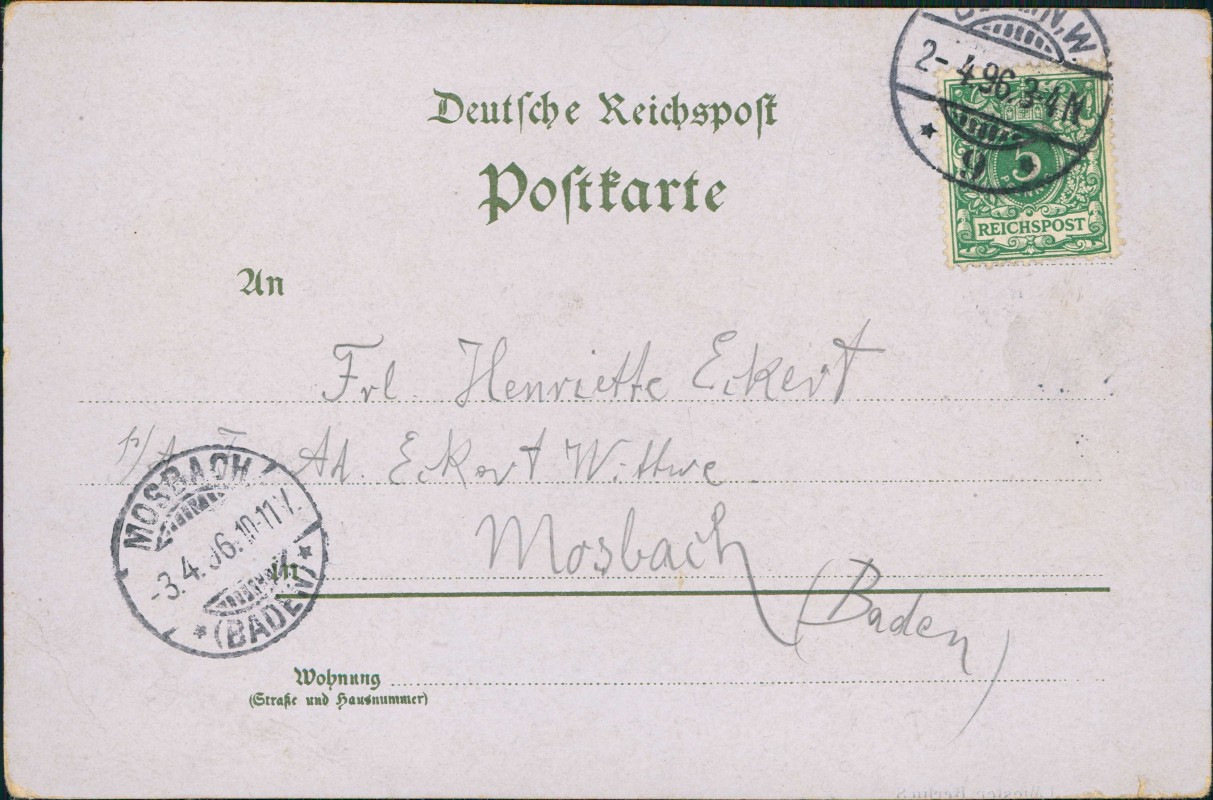 BERLIN, W.
2-4 96. 3-4 N
* 9 *
Deutsche Reichspost
Postkarte
5
REICHSPOST
An
Frl. Henriette Eckert
Ad. Eckert Wittwe
Mosbach
in
(Baden)
MOSBACH
-3.4.96.10-11 V.
* (BADEN) *
Wohnung
(Straße und Hausnummer)